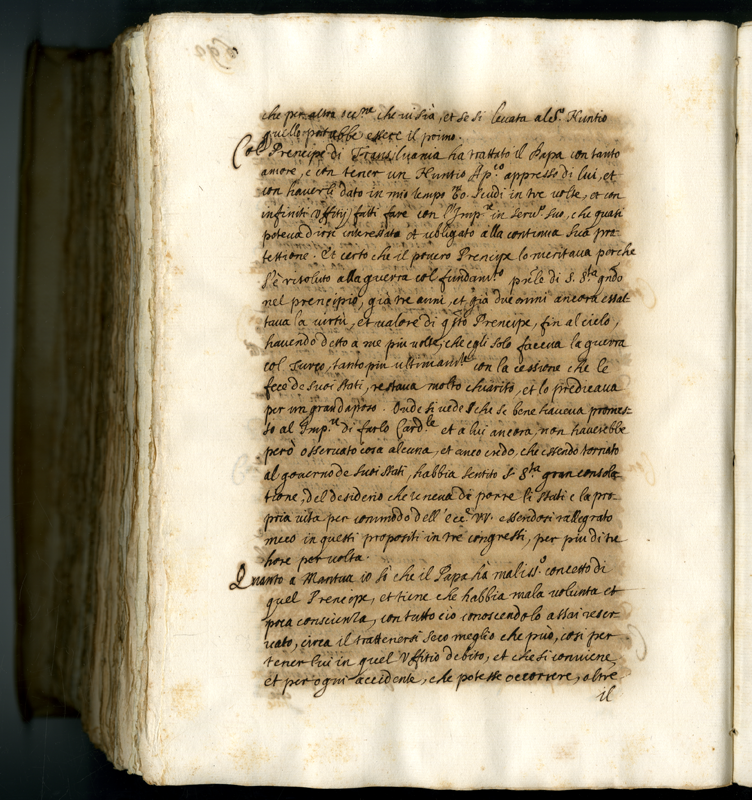 che per altra occ.ne che vi sia, et se si levata al S.r Nuntio
quello potrebbe essere il primo.
Col Prencipe di Transilvania ha trattato il Papa con tanto
amore, e con tener un Nuntio Ap.co appresso di lui, et
con haverli dato in mio tempo scudi in tre volte, et con
infiniti uffitij fatti fare con l'Imp.re in serv.o suo, che quasi
poteva dirsi interessata et ubligato alla continua sua pro-
tettione. Et certo che il povero Prencipe lo meritava porche
s'è risoluto alla guerra col fundam.to di S. S.tà
nel prencipio, già tre anni, et già due anni ancora essal-
tava la virtù, et valore di q.sto Prencipe, fin al cielo,
havendo detto a me più volte, che egli solo faceva la guerra
col Turco, tanto più ultimam.te con la cessione che le
fece de suoi stati, restava molto chiarito, et lo predicava
per un grand Onde si vede che se bene haveva promes-
so al Imp.re di farlo Card.le et a lui ancora, non haverebbe
però osservato cosa alcuna, et anco credo, che essendo tornato
al governo de suoi stati, habbia sentito S. S.tà gran consola-
tione, del desiderio che teneva di porre li stati e la pro-
pria vita per commodo dell' essendosi rallegrato
meco in questi propositi in tre congressi, per più di tre
hore per volta.
Quanto a Mantua io sò che il Papa ha maliss.o concetto di
quel Prencipe, et tiene che habbia mala volunta et
poca conscienza, con tutto cio conoscendolo assai reser-
vato, circa il trattenersi seco meglio che può, cosi per
tener lui in quel uffitio debito, et che si conviene,
et per ogni accidente, che potesse occorrere, oltre
il